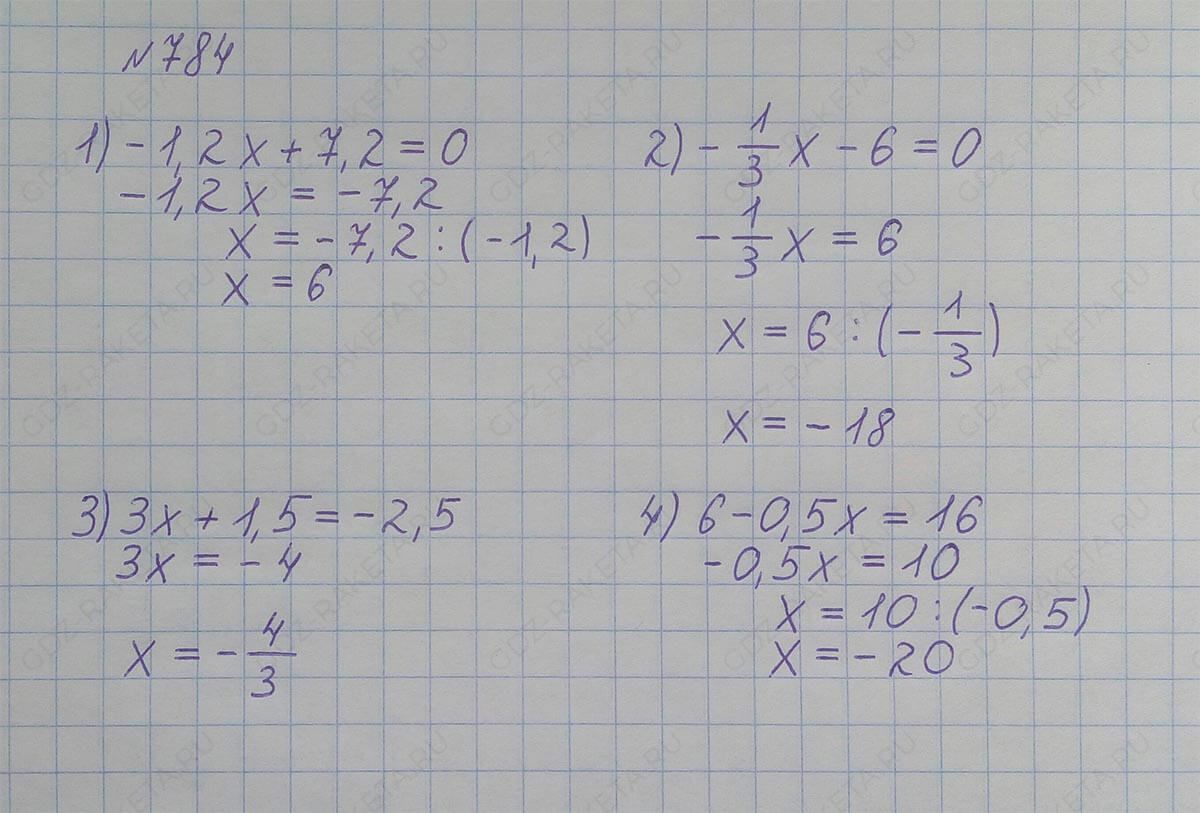 №784
1) -1,2x + 7,2 = 0
-1,2x = -7,2
x = -7,2 : (-1,2)
x = 6
2) - 1/3 x - 6 = 0
- 1/3 x = 6
x = 6 : (- 1/3)
x = -18
3) 3x + 1,5 = -2,5
3x = -4
x = - 4/3
4) 6 - 0,5x = 16
-0,5x = 10
x = 10 : (-0,5)
x = -20
GDZ-RAKETA.RU